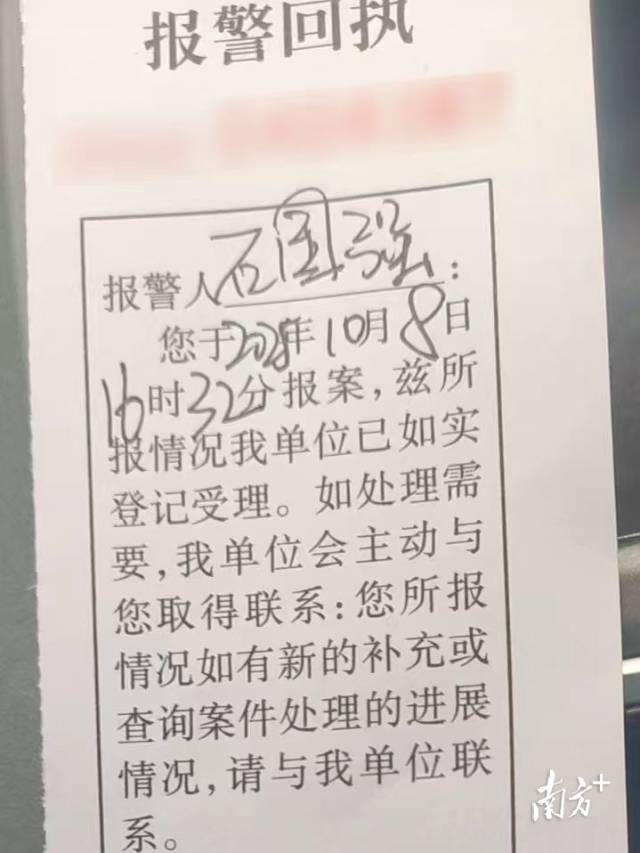 报警回执
报警人石国强:
您于2025年10月8日
16时32分报案,兹所
报情况我单位已如实
登记受理。如处理需
要,我单位会主动与
您取得联系:您所报
情况如有新的补充或
查询案件处理的进展
情况,请与我单位联
系。
南方+